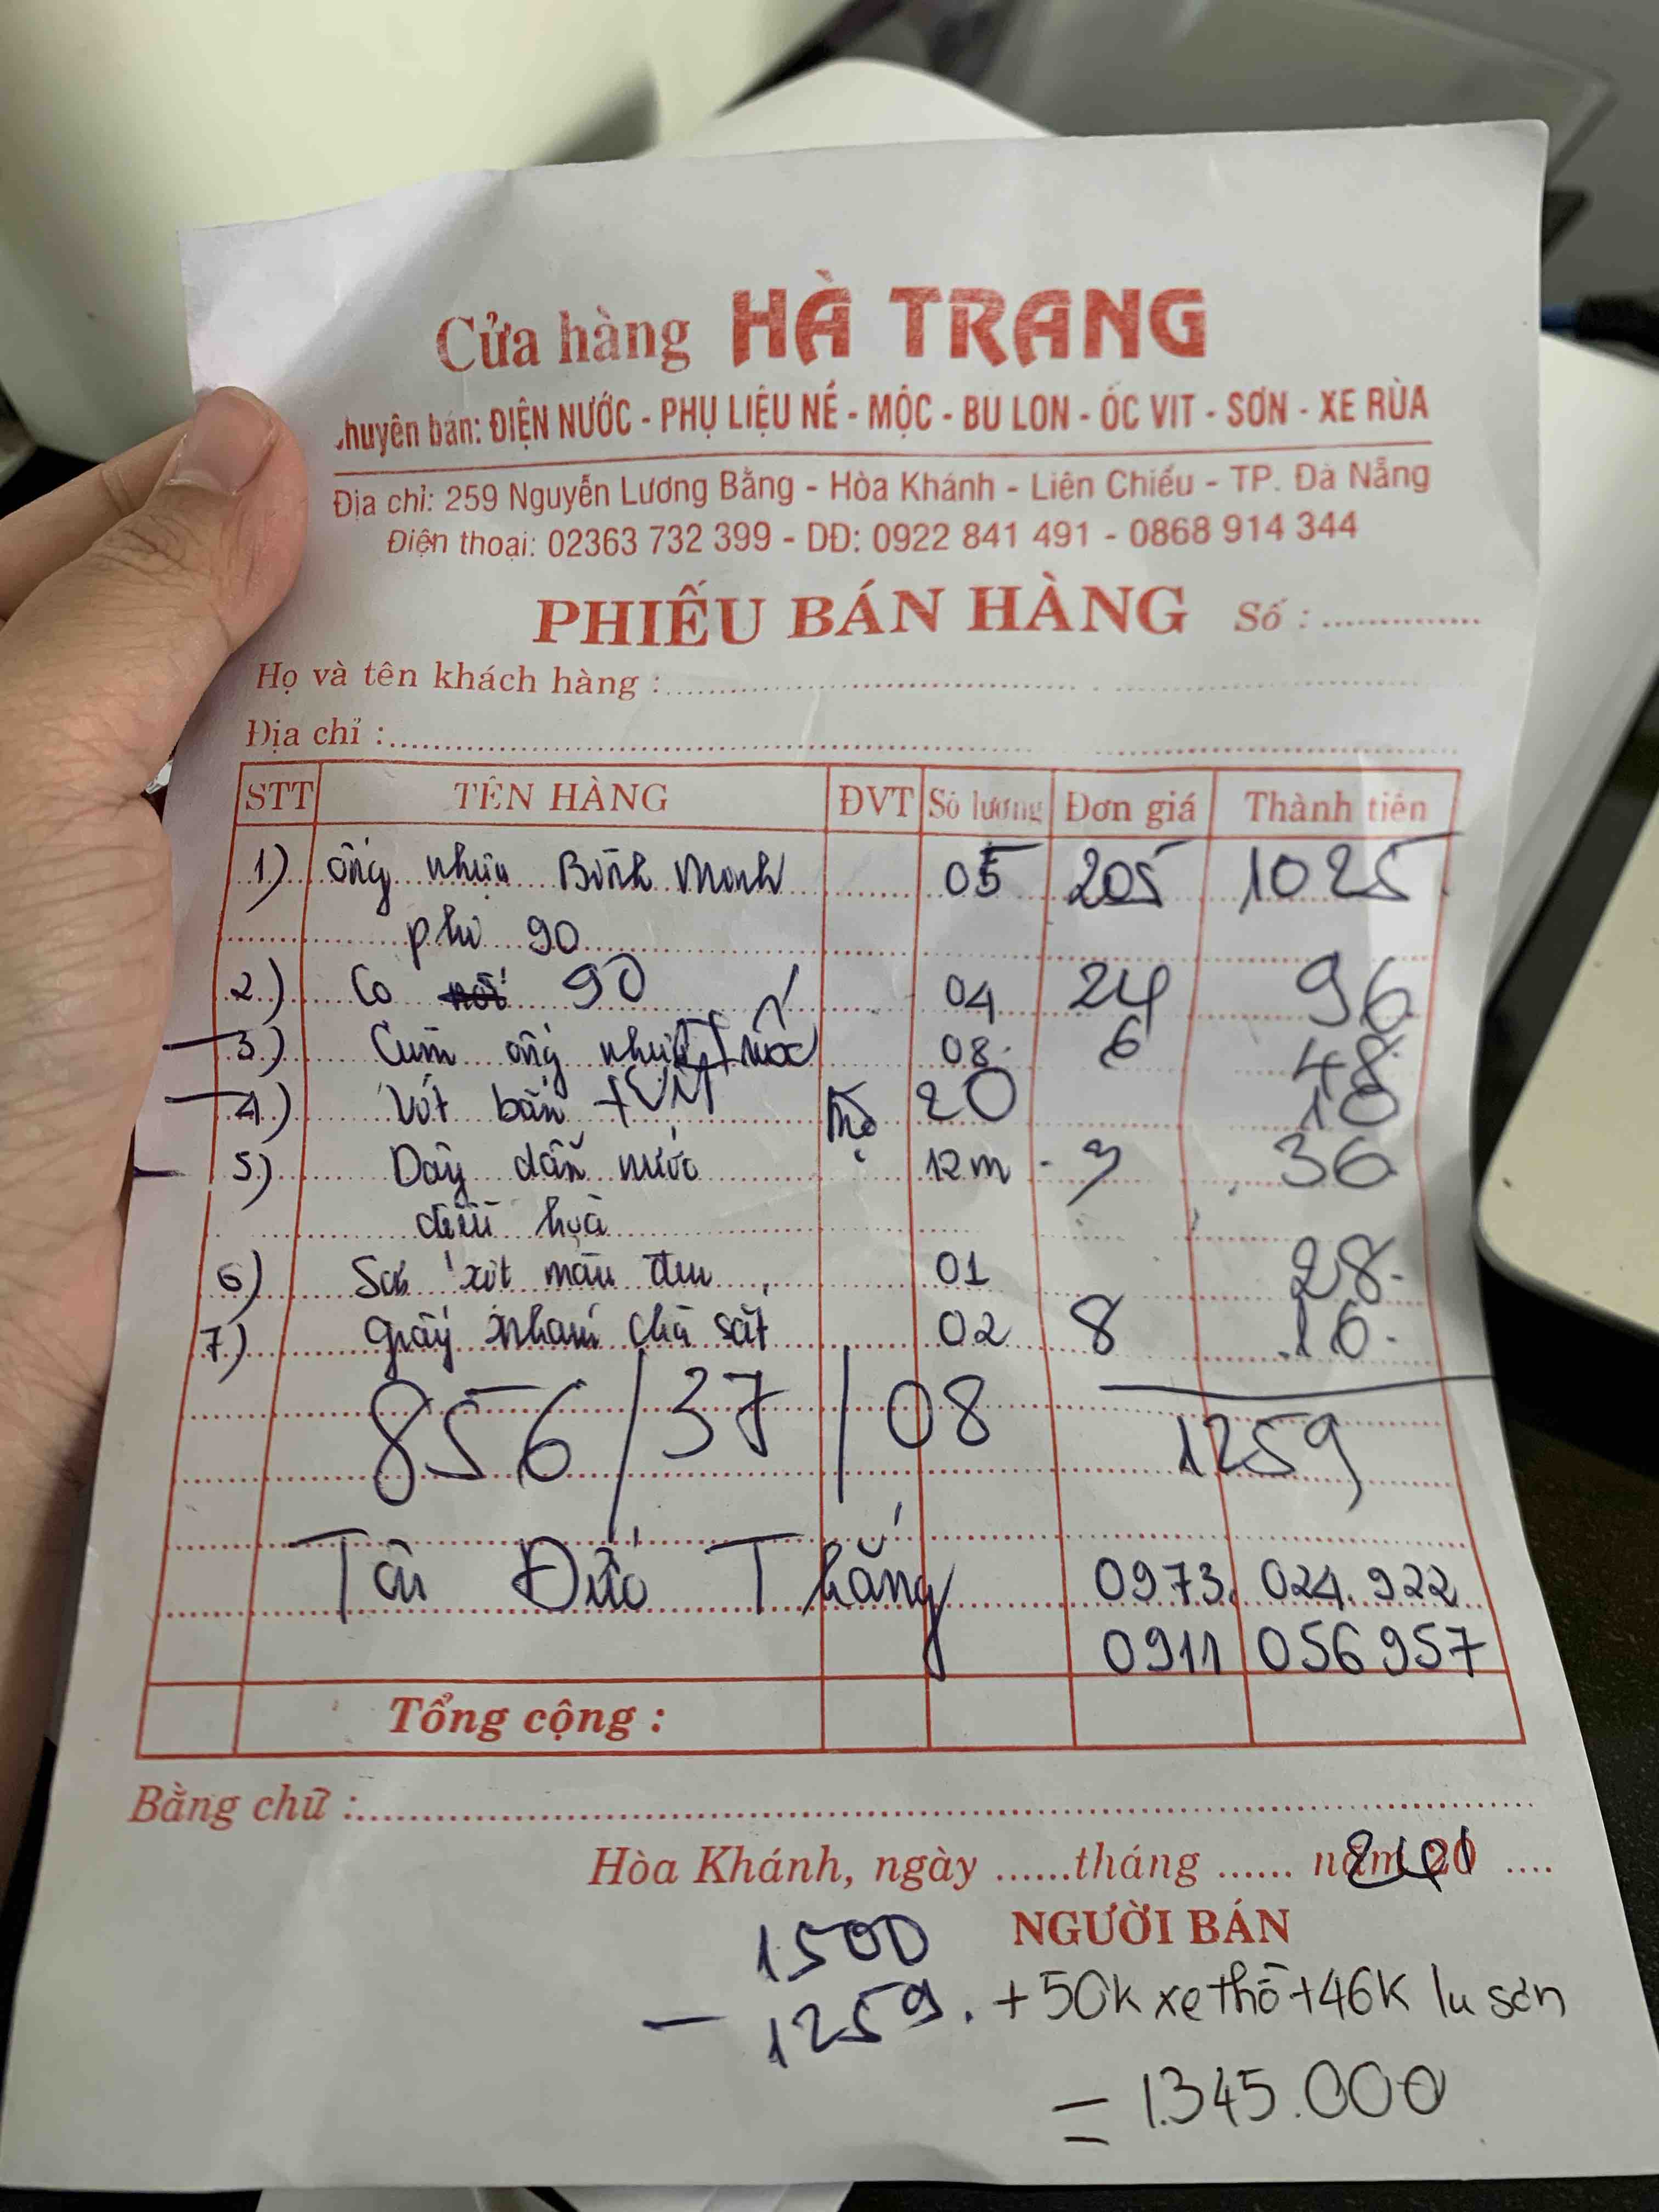 Cửa hàng HÀ TRANG
huyên bán: ĐIỆN NƯỚC - PHỤ LIỆU NỀ - MỘC - BU LON - ỐC VIT - SƠN - XE RÙA
Địa chỉ: 259 Nguyễn Lương Bằng - Hòa Khánh - Liên Chiểu - TP. Đà Nẵng
Điện thoại: 02363 732 399 - DĐ: 0922 841 491 - 0868 914 344
PHIẾU BÁN HÀNG Số :
Họ và tên khách hàng :
Địa chỉ :
STT TÊN HÀNG ĐVT Số lượng Đơn giá Thành tiền
1) ống nhựa Bình Minh 05 205 1025
phi 90
2) Co 90 04 24 96
3) Cùm ống nhựa 08 6 48
4) Vít bắn tôn 20 10
5) Dây dẫn nước 12m - 3 36
điều hoà
6) xịt màu đen 01 28
7) giấy nhám chà sắt 02 8 16
856/37/08 1259
Tôn Đức Thắng 0973.024.922
0911 056957
Tổng cộng :
Bằng chữ :
Hòa Khánh, ngày ......tháng ...... năm 20 ....
1500 NGƯỜI BÁN
- 1259. +50k xe thồ +46K lu sơn
= 1.345.000